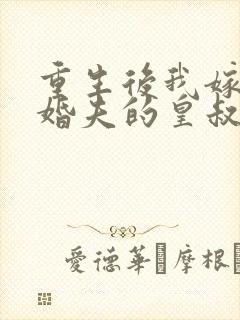 重生後我嫁
婚夫的皇叔
愛德華·摩根